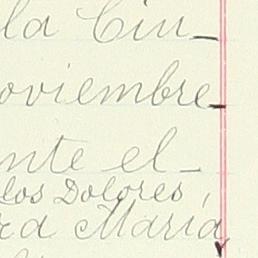 la Ciu_
oviembre_
nte el_
los Dolores,
ra María